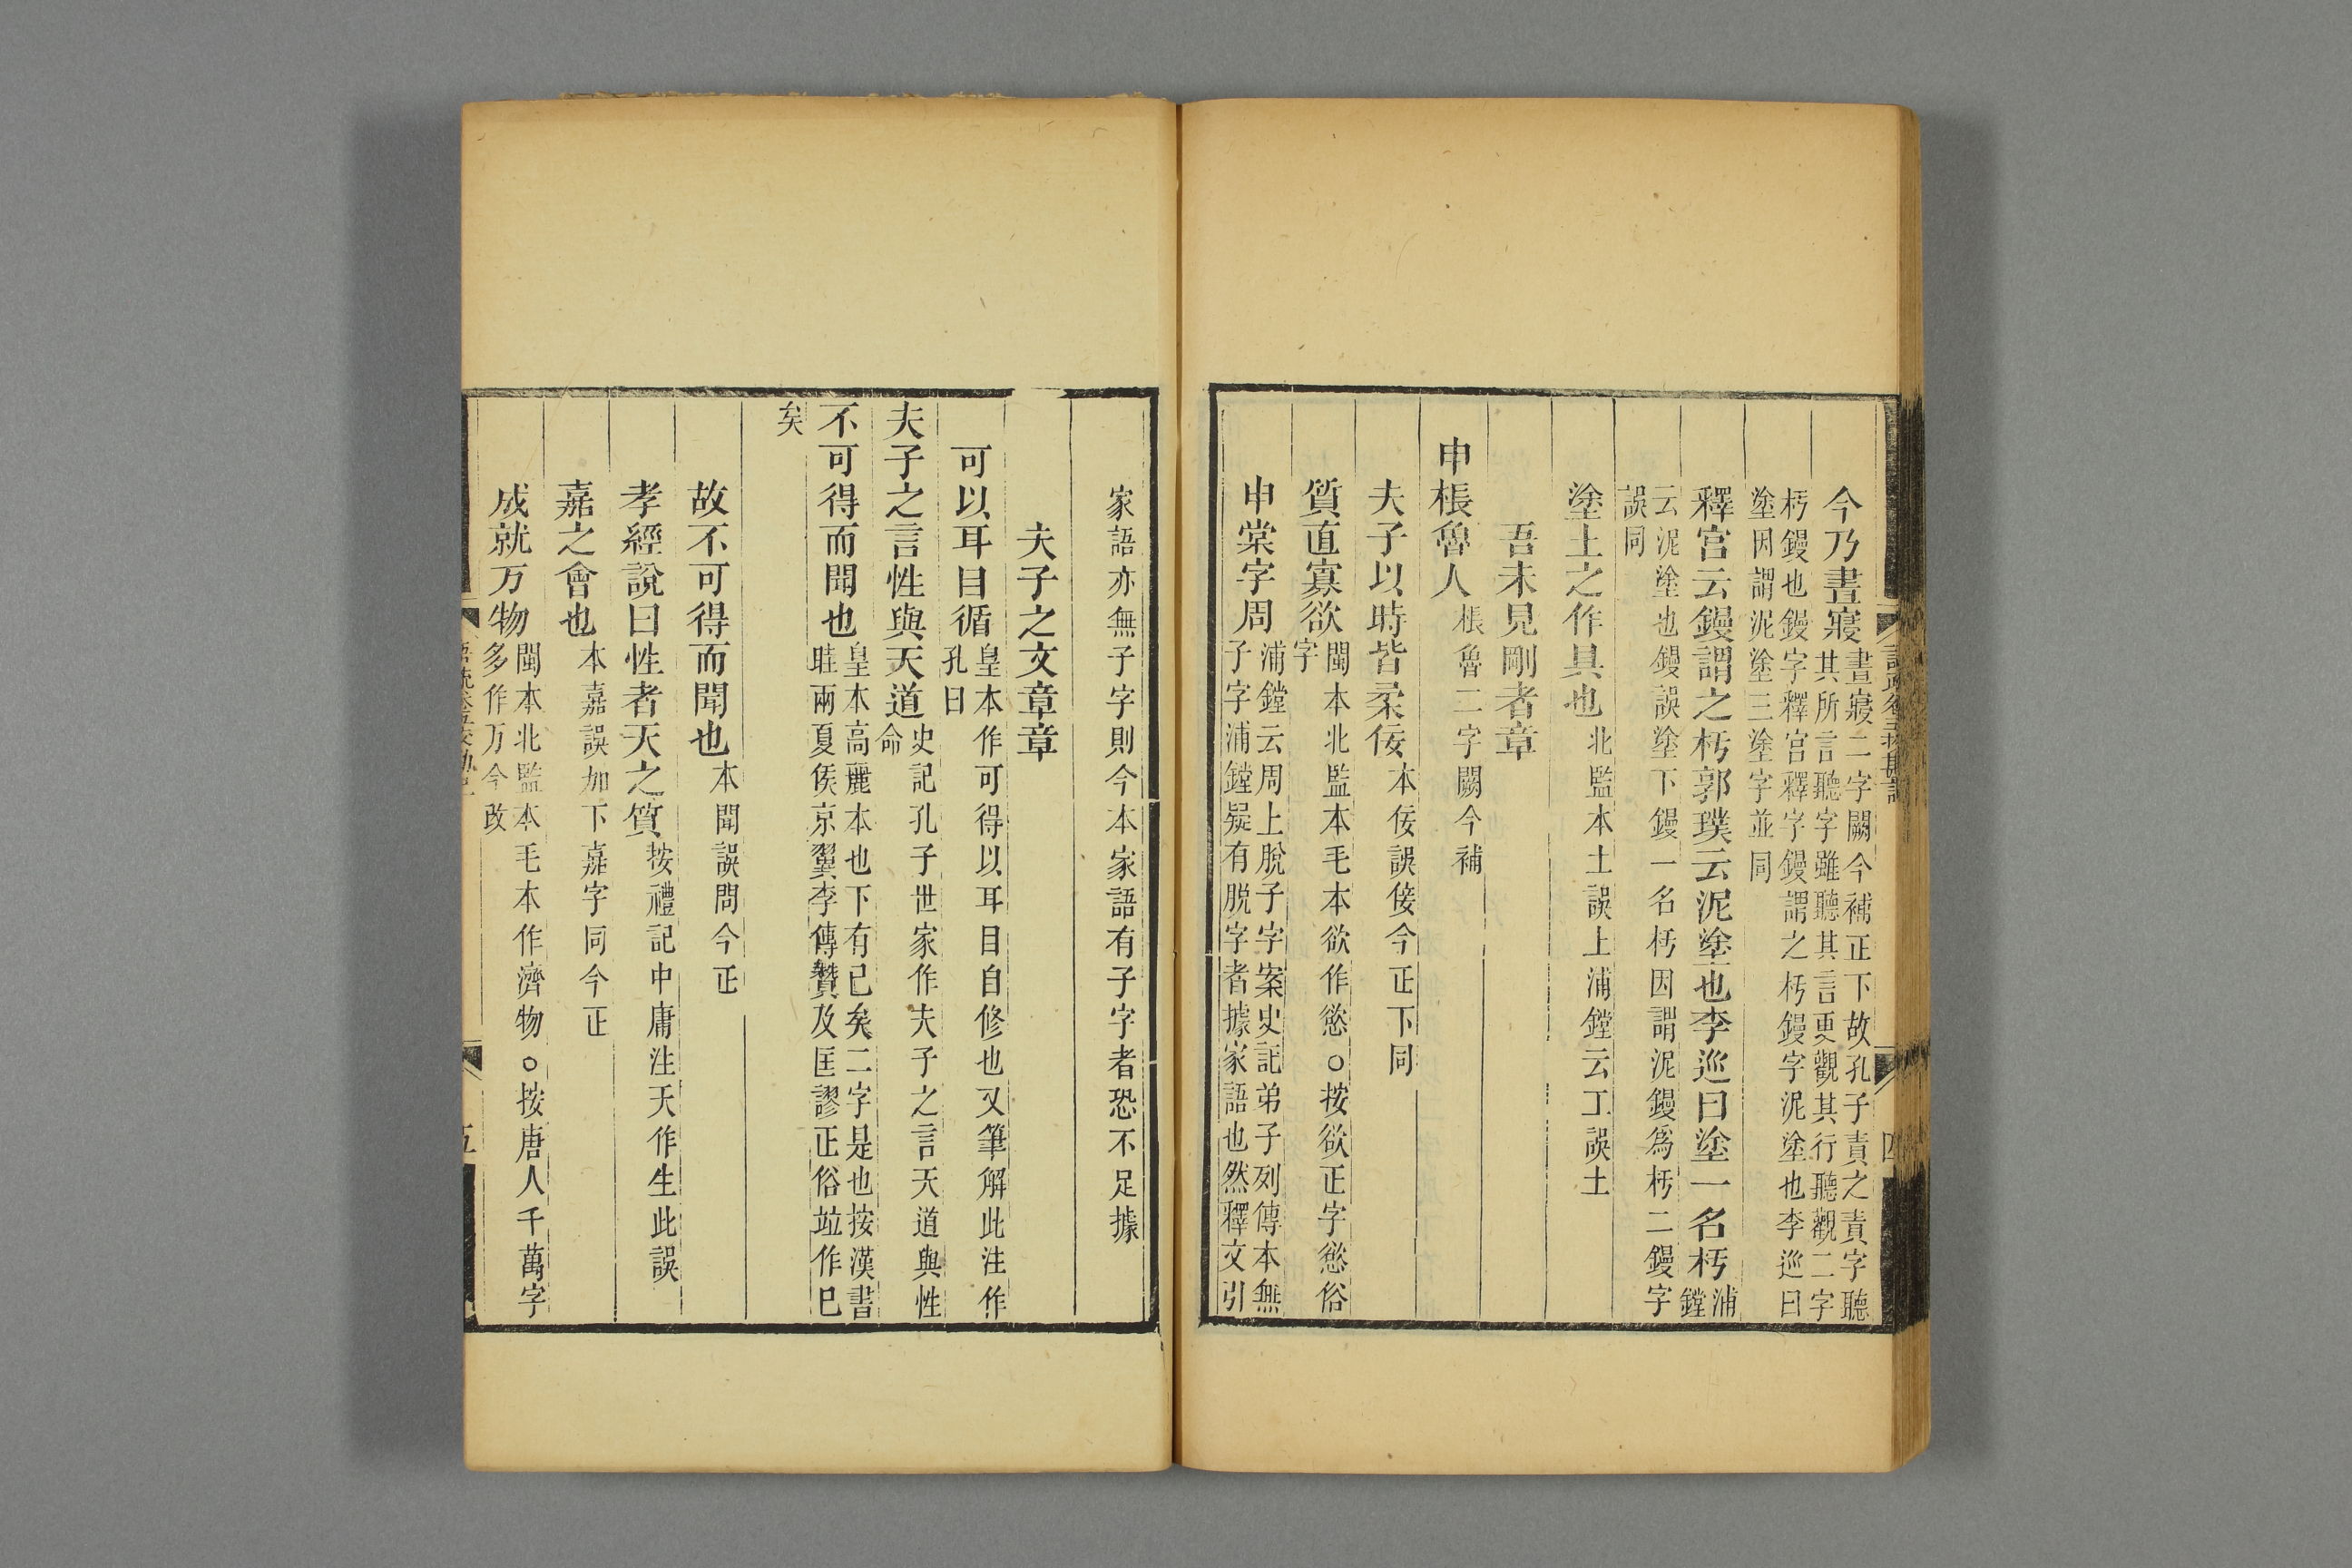 今乃晝寢晝寢二字闕今補正下故孔子責之責字聽
其所言聽字雖聽其言更觀其行聽觀二字
杇鏝也鏝字釋宮釋字鏝謂之杇鏝字泥塗也李巡曰
塗因謂泥塗三塗字並同
釋宮云鏝謂之杇郭璞云泥塗也李巡曰塗一名杇浦
鏜
云泥塗也鏝誤塗下鏝一名杇因謂泥鏝爲杇二鏝字
誤同
塗土之作具也北監本土誤上浦鏜云工誤土
吾未見剛者章
申棖魯人棖魯二字闕今補
夫子以時皆柔佞本佞誤倿今正下同
質直寡欲閩本北監本毛本欲作慾○按欲正字慾俗
字
申棠字周浦鏜云周上脫子字案史記弟子列傳本無
子字浦鏜疑有脫字者據家語也然釋文引
家語亦無子字則今本家語有子字者恐不足據
夫子之文章章
可以耳目循皇本作可得以耳目自修也又筆解此注作
孔曰
夫子之言性與天道史記孔子世家作夫子之言天道與性
命
不可得而聞也皇本高麗本也下有已矣二字是也按漢書
眭兩夏侯京翼李傳贊及匡謬正俗竝作已
矣
故不可得而聞也本聞誤問今正
孝經說曰性者天之質按禮記中庸注天作生此誤
嘉之會也本嘉誤加下嘉字同今正
成就万物閩本北監本毛本作濟物○按唐人千萬字
多作万今改
五